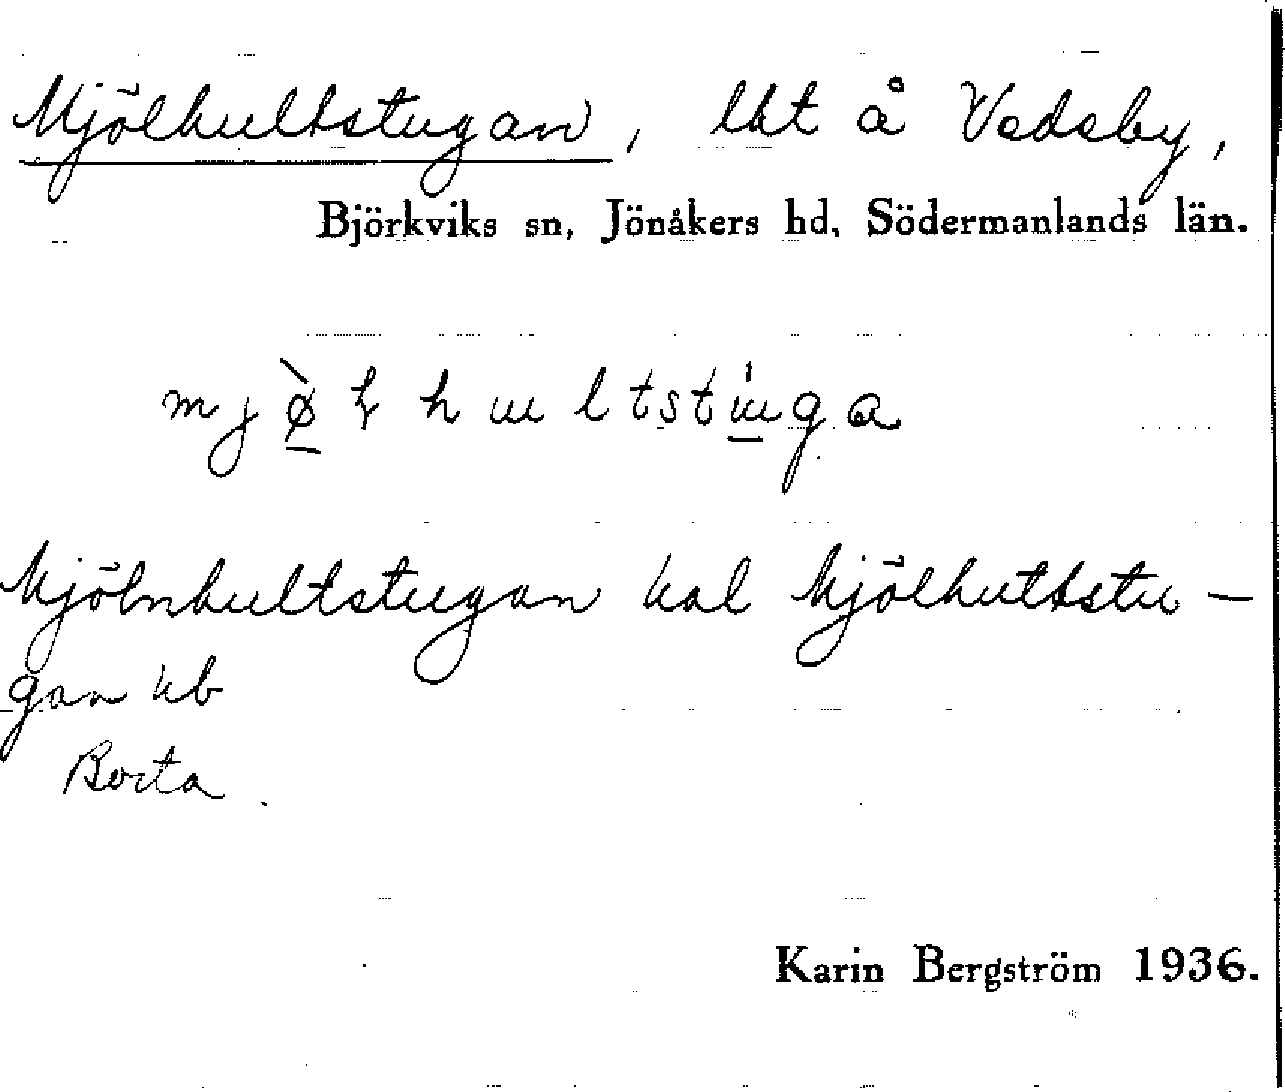 Mjölhultstugan, lht å Vedeby,
Björkviks sn, Jönåkers hd, Södermanlands län.
Mjölnhultstugan kal Mjölhultstu-
gan kb
Borta.
Karin Bergström 1936.